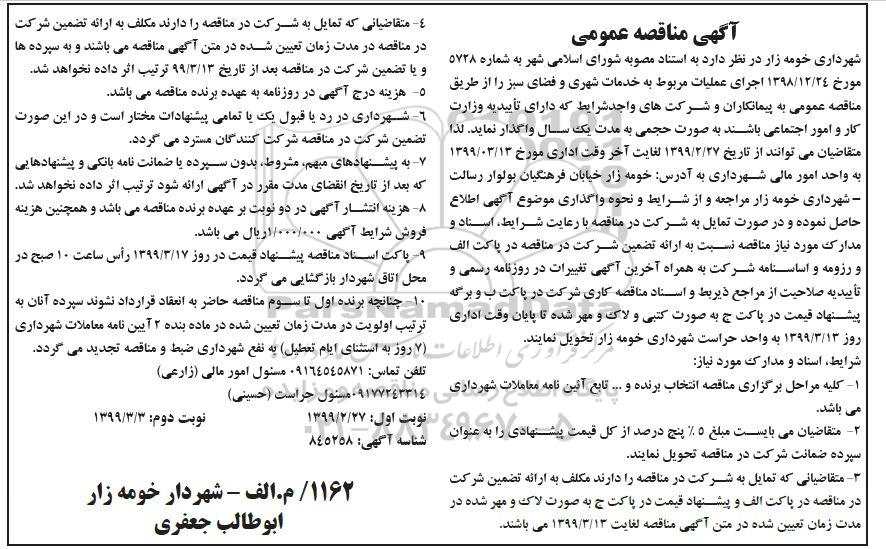 آگهی مناقصه عمومی
شهرداری خومه زار در نظر دارد به استناد مصوبه شورای اسلامی شهر به شماره ۵۷۲۸
مورخ ۱۳۹۸/۱۲/۲۴ اجرای عملیات مربوط به خدمات شهری و فضای سبز را از طریق
مناقصه عمومی به پیمانکاران و شرکت های واجدشرایط که دارای تأییدیه وزارت
کار و امور اجتماعی باشند به صورت حجمی به مدت یک سال واگذار نماید. لذا
متقاضیان می توانند از تاریخ ۱۳۹۹/۲/۲۷ لغایت آخر وقت اداری مورخ ۱۳۹۹/۰۳/۱۳
به واحد امور مالی شهرداری به آدرس: خومه زار خیابان فرهنگیان بولوار رسالت
– شهرداری خومه زار مراجعه و از شرایط و نحوه واگذاری موضوع آگهی اطلاع
حاصل نموده و در صورت تمایل به شرکت در مناقصه با رعایت شرایط، اسناد و
مدارک مورد نیاز مناقصه نسبت به ارائه تضمین شرکت در مناقصه در پاکت الف
و رزومه و اساسنامه شرکت به همراه آخرین آگهی تغییرات در روزنامه رسمی و
تأییدیه صلاحیت از مراجع ذیربط و اسناد مناقصه کاری شرکت در پاکت ب و برگه
پیشنهاد قیمت در پاکت ج به صورت کتبی و لاک و مهر شده تا پایان وقت اداری
روز ۱۳۹۹/۳/۱۳ به واحد حراست شهرداری خومه زار تحویل نمایند.
شرایط، اسناد و مدارک مورد نیاز:
۱- کلیه مراحل برگزاری مناقصه انتخاب برنده و ... تابع آئین نامه معاملات شهرداری
می باشد.
۲- متقاضیان می بایست مبلغ ۵ ٪ پنج درصد از کل قیمت پیشنهادی را به عنوان
سپرده ضمانت شرکت در مناقصه تحویل نمایند.
۳- متقاضیانی که تمایل به شرکت در مناقصه را دارند مکلف به ارائه تضمین شرکت
در مناقصه در پاکت الف و پیشنهاد قیمت در پاکت ج به صورت لاک و مهر شده در
مدت زمان تعیین شده در متن آگهی مناقصه لغایت ۱۳۹۹/۳/۱۳ می باشند.
۴- متقاضیانی که تمایل به شرکت در مناقصه را دارند مکلف به ارائه تضمین شرکت
در مناقصه در مدت زمان تعیین شده در متن آگهی مناقصه می باشند و به سپرده ها
و یا تضمین شرکت در مناقصه بعد از تاریخ ۹۹/۳/۱۳ ترتیب اثر داده نخواهد شد.
۵- هزینه درج آگهی در روزنامه به عهده برنده مناقصه می باشد.
۶- شهرداری در رد یا قبول یک یا تمامی پیشنهادات مختار است و در این صورت
تضمین شرکت در مناقصه شرکت کنندگان مسترد می گردد.
۷- به پیشنهادهای مبهم، مشروط، بدون سپرده یا ضمانت نامه بانکی و پیشنهادهایی
که بعد از تاریخ انقضای مدت مقرر در آگهی ارائه شود ترتیب اثر داده نخواهد شد.
۸- هزینه انتشار آگهی در دو نوبت بر عهده برنده مناقصه می باشد و همچنین هزینه
فروش شرایط آگهی ۱/۰۰۰/۰۰۰ریال می باشد.
۹- پاکت اسناد مناقصه پیشنهاد قیمت در روز ۱۳۹۹/۳/۱۷ رأس ساعت ۱۰ صبح در
محل اتاق شهردار بازگشایی می گردد.
۱۰- چنانچه برنده اول تا سوم مناقصه حاضر به انعقاد قرارداد نشوند سپرده آنان به
ترتیب اولویت در مدت زمان تعیین شده در ماده بنده ۲ آیین نامه معاملات شهرداری
(۷ روز به استثنای ایام تعطیل) به نفع شهرداری ضبط و مناقصه تجدید می گردد.
تلفن تماس: ۰۹۱۶۴۵۴۵۸۷۱ مسئول امور مالی (زارعی)
۰۹۱۷۷۲۴۳۳۱۴مسئول حراست (حسینی)
نوبت اول: ۱۳۹۹/۲/۲۷ نوبت دوم: ۱۳۹۹/۳/۳
شناسه آگهی: ۸۴۵۲۵۸
۱۱۶۲/ م.الف – شهردار خومه زار
ابوطالب جعفری
ParsNamadData
۰۲۱-۸۸۳۴۹۶۷۰-۵